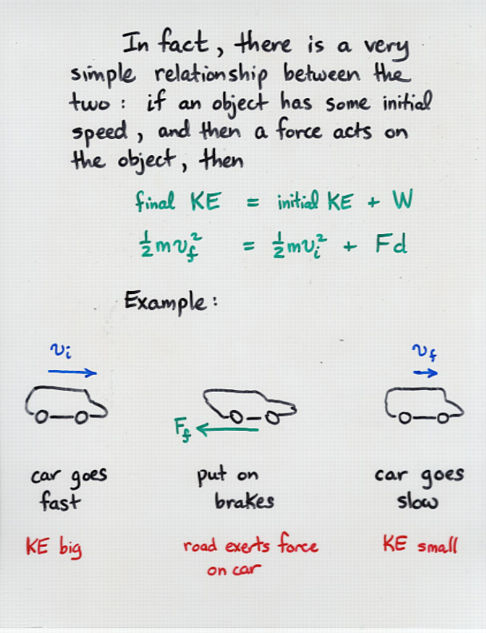 In fact, there is a very
simple relationship between the
two: if an object has some initial
speed, and then a force acts on
the object, then
final KE = initial KE + W
½mv_f² = ½mv_i² + Fd
Example:
v_i
v_f
F_f
car goes
fast
put on
brakes
car goes
slow
KE big
road exerts force
on car
KE small